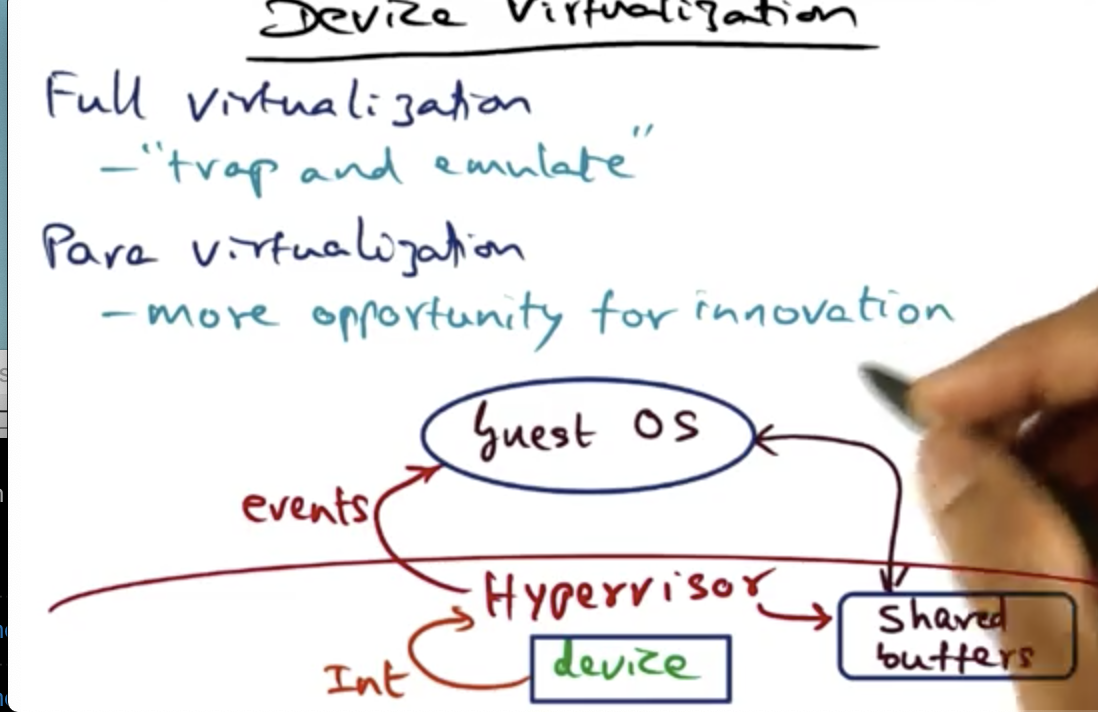 Device Virtualization
Full virtualization
- "trap and emulate"
Para virtualization
- more opportunity for innovation
Guest OS
events
Hypervisor
shared
buffers
device
Int